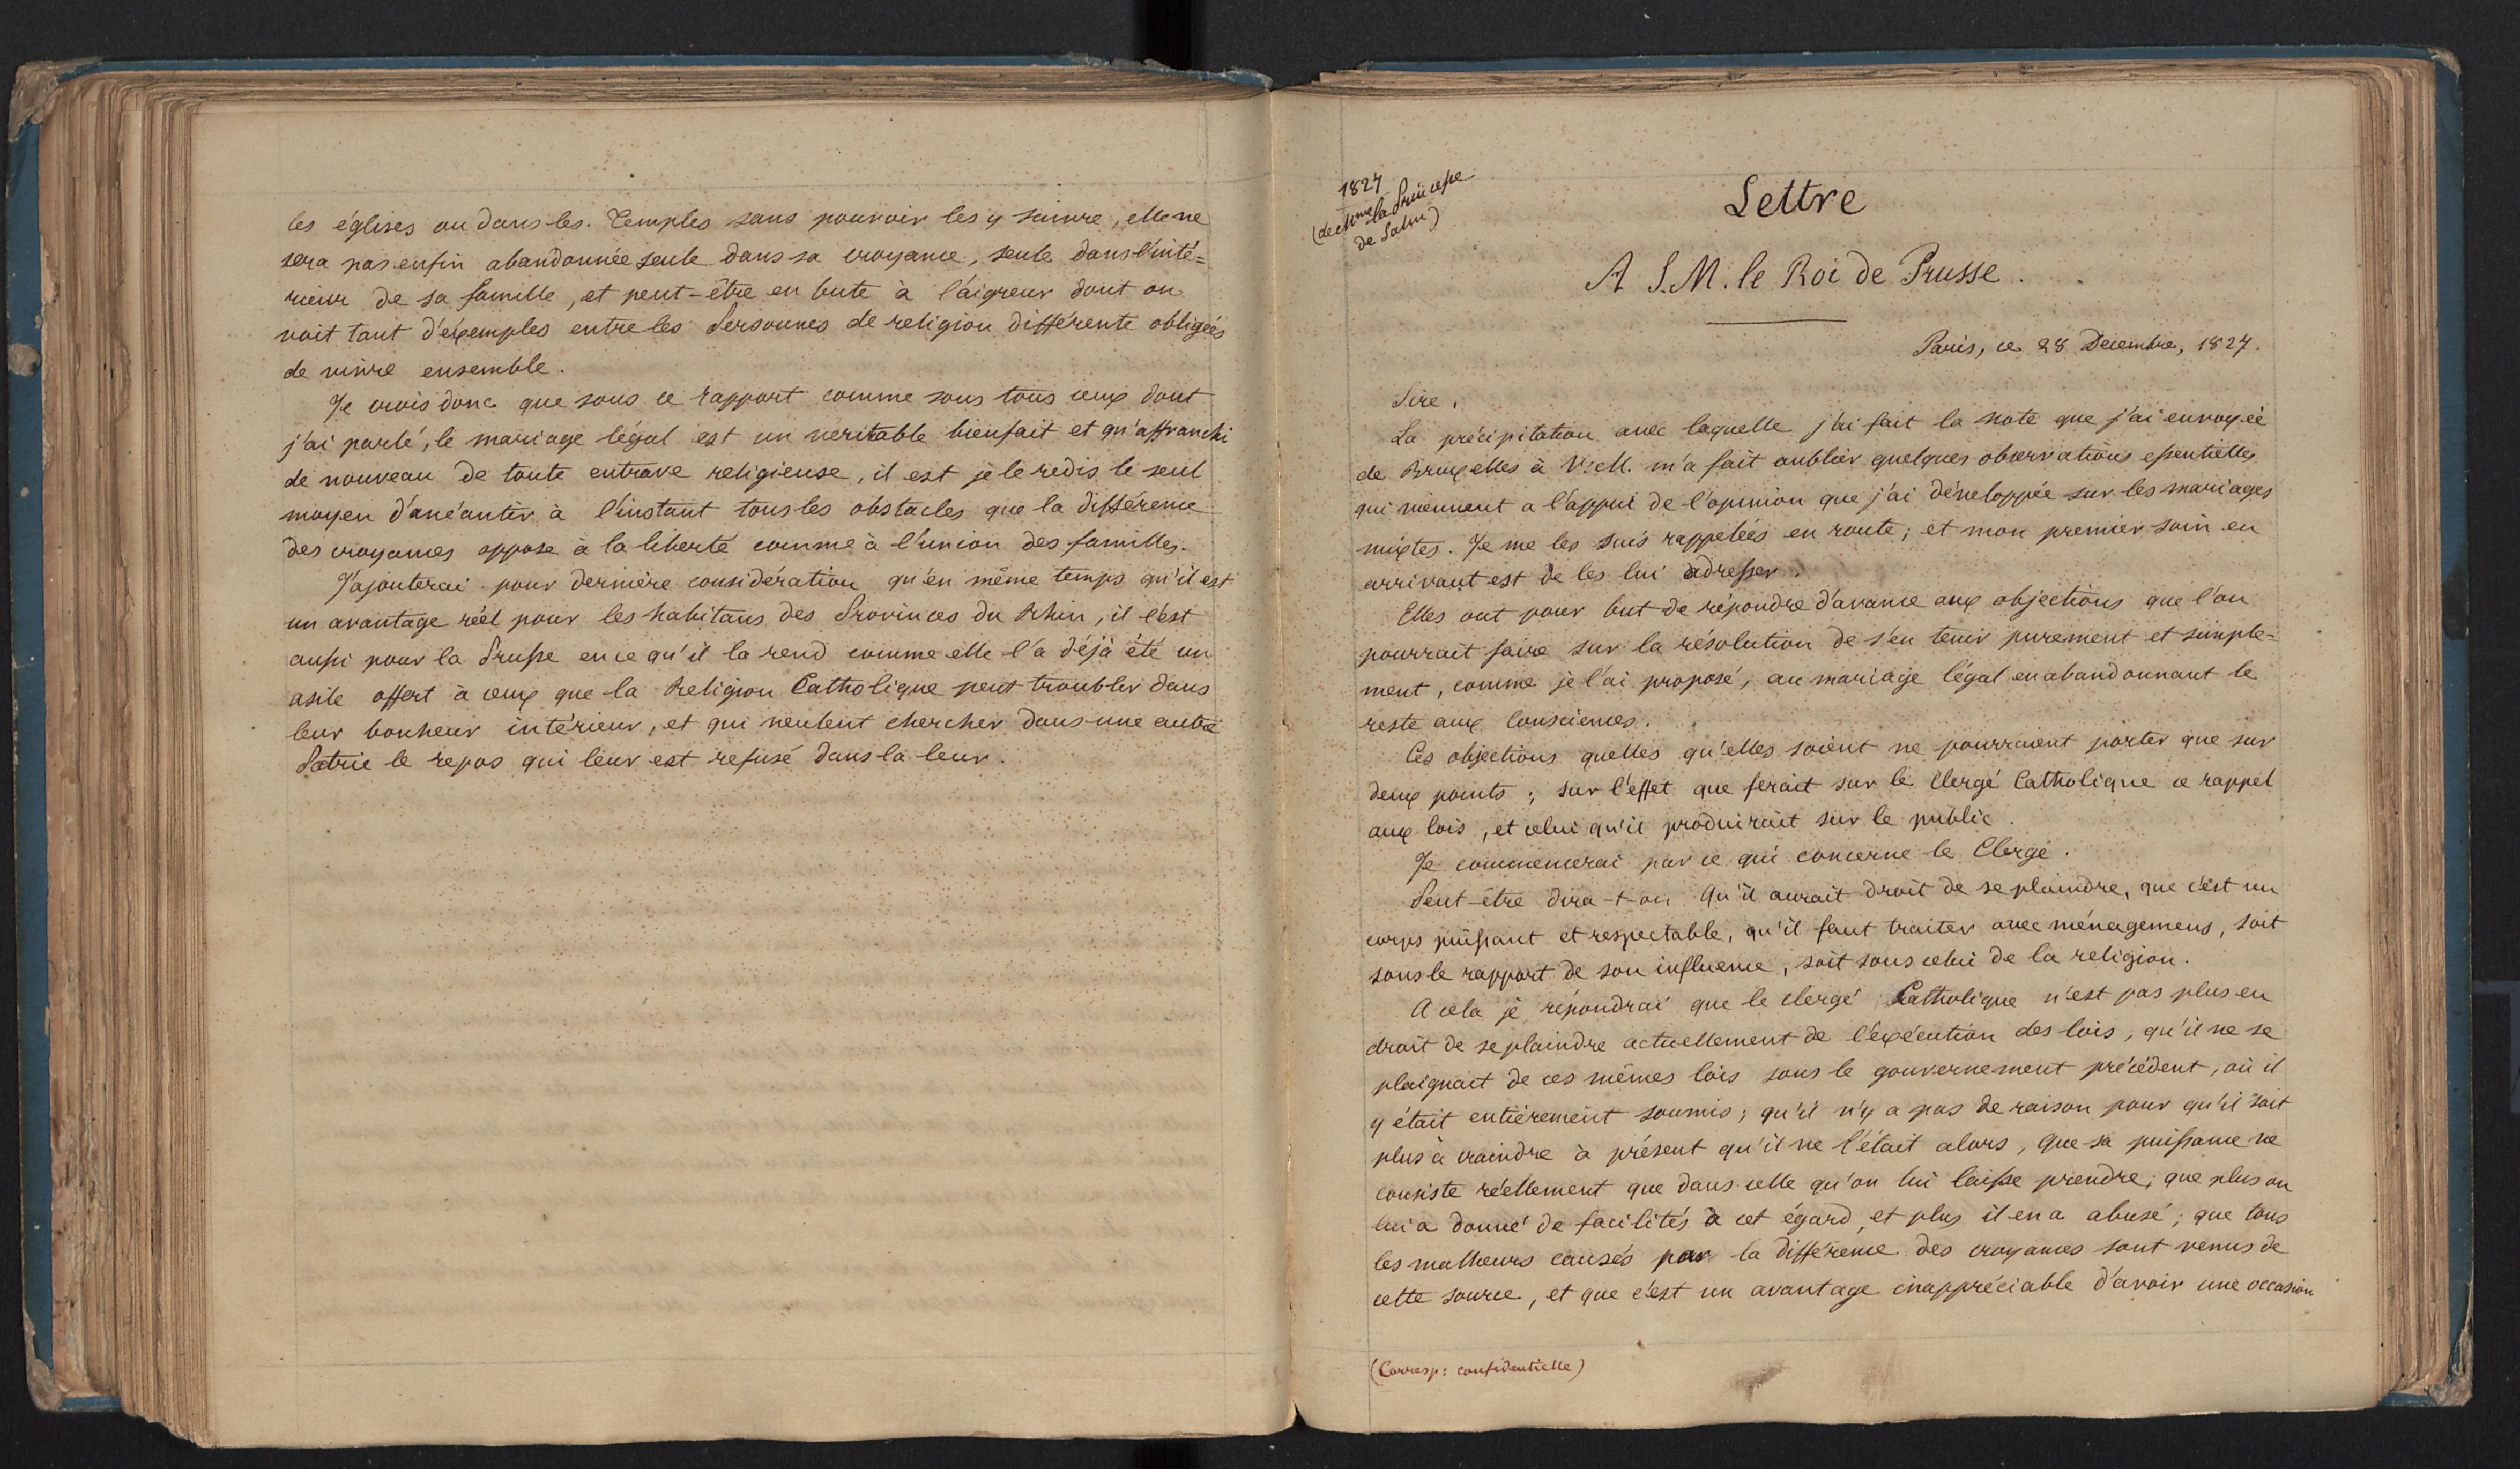 les églises ou dans les. Temples sans pouvoir les y suivre, elle ne
sera pas enfin abandonnée seule dans sa croyance, seule dans l'inté=
rieur de sa famille, et peut-être en bute à l'aigreur dont on
voit tant d'exemples entre les Personnes de religion différente obligées
de vivre ensemble.
Je crois donc que sous ce rapport comme sous tous ceux dont
j'ai parlé, le mariage légal est un veritable bienfait et qu'affranchi
de nouveau de toute entrave religieuse, il est je le redis le seul
moyen d'anéantir à l'instant tous les obstacles que la différence
des croyances oppose à la liberté comme à l'union des familles.
J'ajouterai pour dernière considération qu'en même temps qu'il est
un avantage réel pour les habitans des Provinces du Rhin, il l'est
aussi pour la Prusse en ce qu'il la rend comme elle l'a déjà été un
asile offert à ceux que la Religion Catholique peut troubler dans
leur bonheur intérieur, et qui veulent chercher dans une autre
Patrie le repos qui leur est refusé dans la leur.
1827
(de Mme la Princesse
de Salm)
Lettre
A S.M. le Roi de Prusse.
Paris, ce 28 Decembre, 1827.
Sire,
La précipitation avec laquelle j'ai fait la note que j'ai envoyée
de Bruxelles à V: M. m'a fait oublier quelques observations essentielles
qui viennent a l'appui de l'opinion que j'ai développée sur les mariages
mixtes. Je me les suis rappelées en route; et mon premier soin en
arrivant est de les lui adresser.
Elles ont pour but de répondre d'avance aux objections que l'on
pourrait faire sur la résolution de s'en tenir purement et simple=
ment, comme je l'ai proposé, au mariage légal en abandonnant le
reste aux Consciences.
Ces objections quelles qu'elles soient ne pourraient porter que sur
deux points; sur l'effet que ferait sur le Clergé Catholique ce rappel
aux lois, et celui qu'il produirait sur le public.
Je commencerai par ce qui concerne le Clergé.
Peut-être dira-t-on qu'il aurait droit de se plaindre, que c'est un
corps puissant et respectable, qu'il faut traiter avec ménagemens, soit
sous le rapport de son influence, soit sous celui de la religion.
A cela je répondrai que le clergé Catholique n'est pas plus en
droit de se plaindre actuellement de l'exécution des lois, qu'il ne se
plaignait de ces mêmes lois sous le gouvernement précédent, où il
y était entièrement soumis; qu'il n'y a pas de raison pour qu'il soit
plus à craindre à présent qu'il ne l'était alors, que sa puissance ne
consiste réellement que dans celle qu'on lui laisse prendre; que plus on
lui a donné de facilités à cet égard, et plus il en a abusé; que tous
les malheurs causés par la différence des croyances sont venus de
cette source, et que c'est un avantage inappréciable d'avoir une occasion
(Corresp: confidentielle)